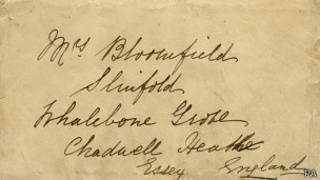 Mrs Bloomfield
Slinfold
Whalebone Grove
Chadwell Heath
Essex England
PA